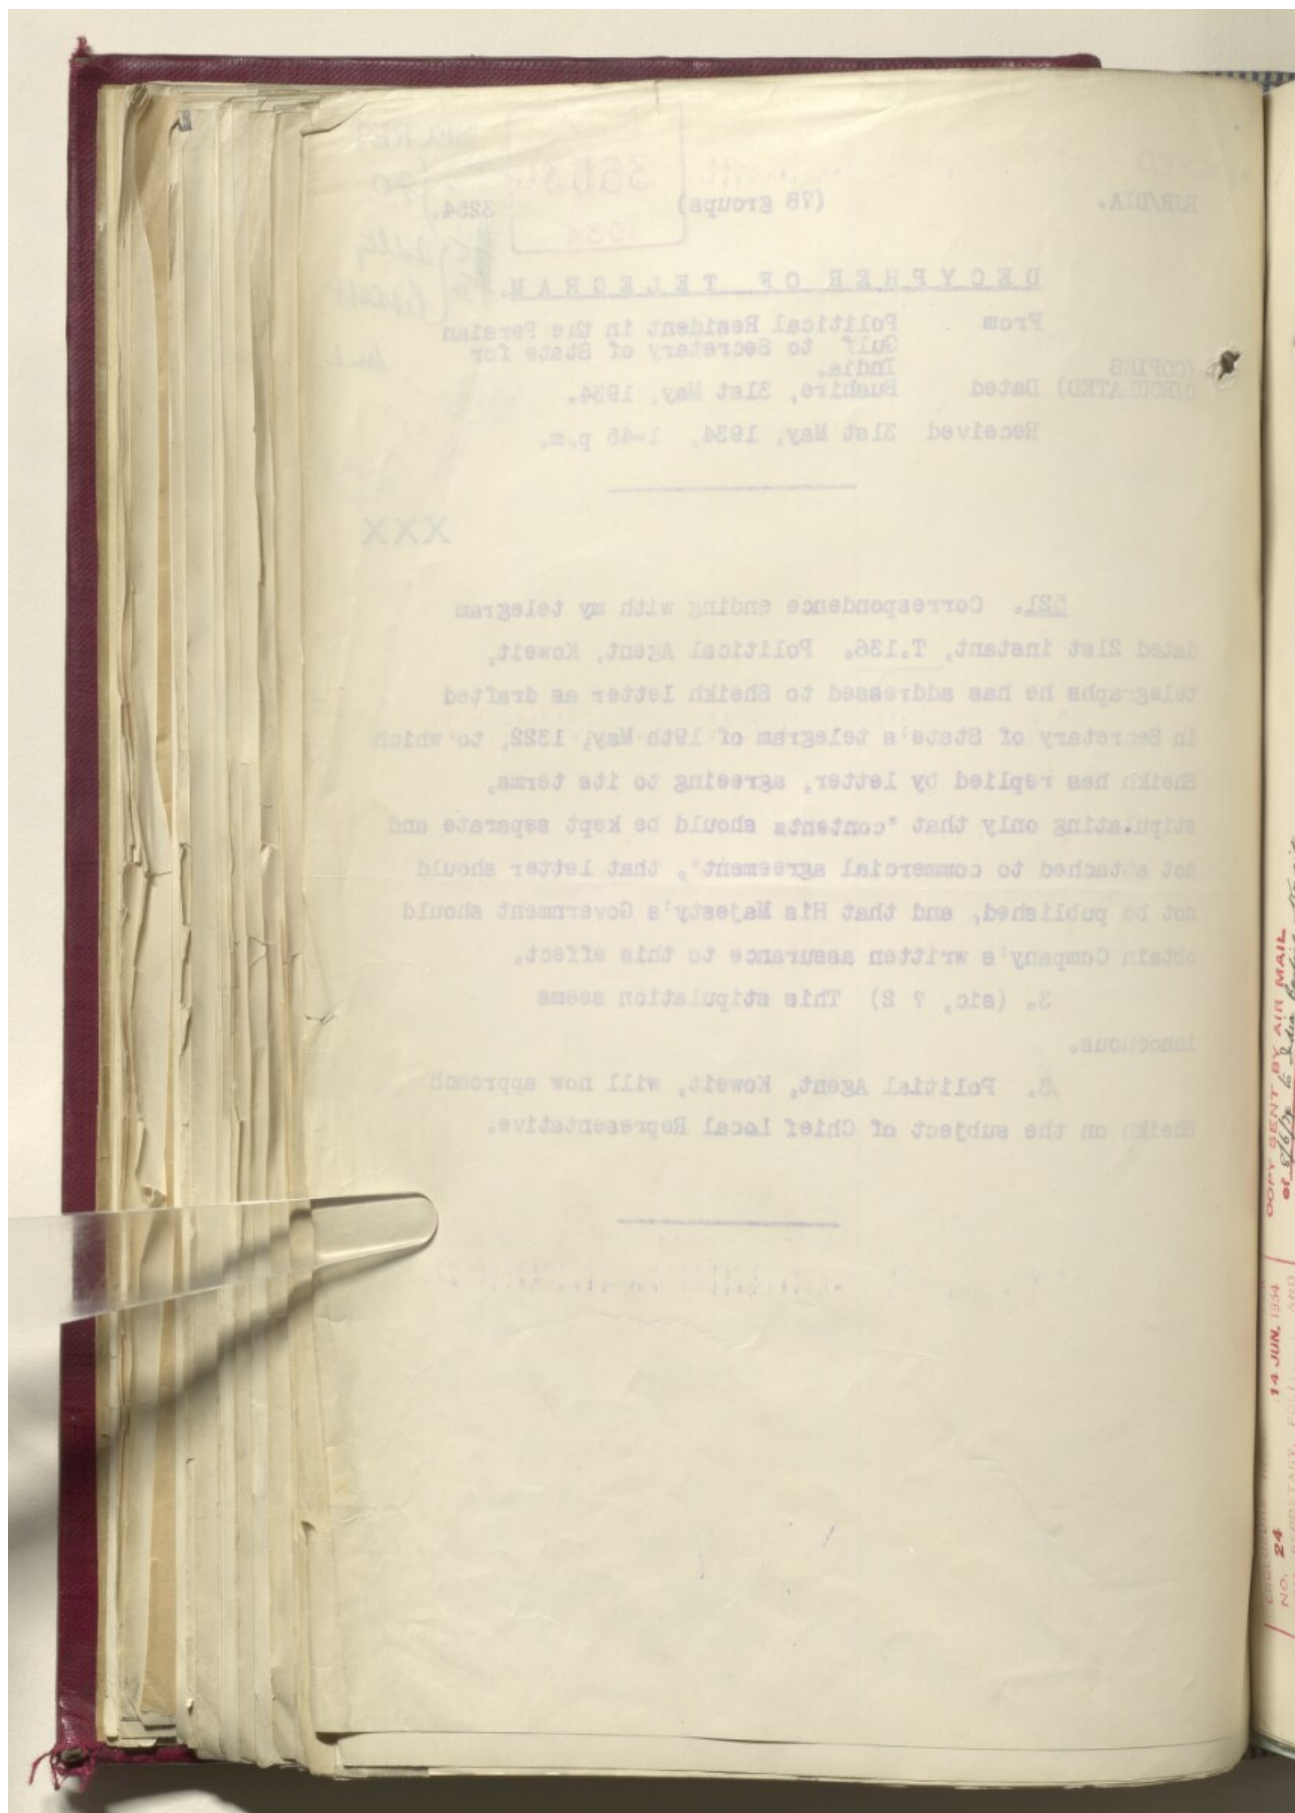 RJR/DIA. (78 groups) 3254.
SECRET
1934
DECYPHER OF TELEGRAM.
From Political Resident in the Persian
Gulf to Secretary of State for
India.
(COPIES
CIRCULATED) Dated Bushire, 31st May, 1934.
Received 31st May, 1934, 1-45 p.m.
XXX
521. Correspondence ending with my telegram
dated 21st instant, T.136. Political Agent, Koweit,
telegraphs he has addressed to Sheikh letter as drafted
in Secretary of State's telegram of 19th May, 1322, to which
Sheikh has replied by letter, agreeing to its terms,
stipulating only that "contents should be kept separate and
not attached to commercial agreement", that letter should
not be published, and that His Majesty's Government should
obtain Company's written assurance to this effect.
3. (sic, ? 2) This stipulation seems
innocuous.
3. Politial Agent, Koweit, will now approach
Sheikh on the subject of Chief Local Representative.
COPY SENT BY AIR MAIL
of
NO. 24 14 JUN. 1934